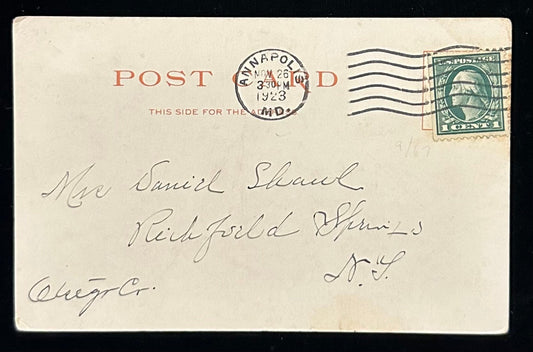 POST CARD
THIS SIDE FOR THE ADDRESS
ANNAPOLIS
NOV 26
3 30 PM
1923
MD.
U.S. POSTAGE
1 CENT 1
Mrs Daniel Shaul
Richfield Springs
N.Y.
Otsego Co.